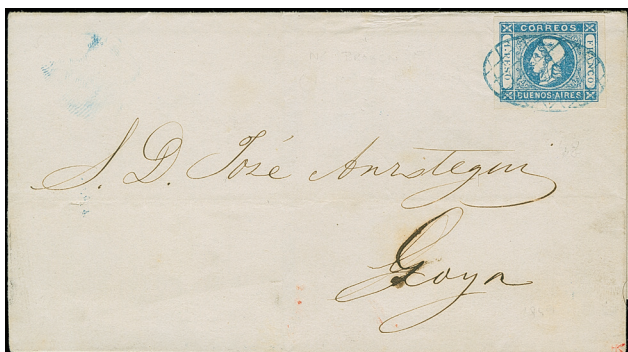 CORREOS
1 PESO
FRANCO
BUENOS-AIRES
S. D. José Anrstegui
Goya